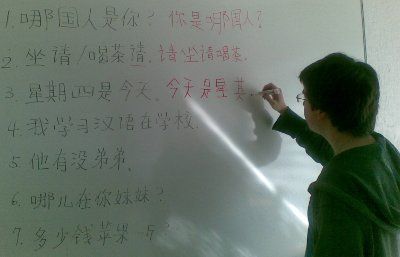 1. 哪国人是你? 你是哪国人?
2. 坐请/喝茶请. 请坐请喝茶.
3. 星期四是今天. 今天是星其
4. 我学习汉语在学校.
5. 他有没弟弟.
6. 哪儿在你妹妹?
7. 多少钱苹果 ?